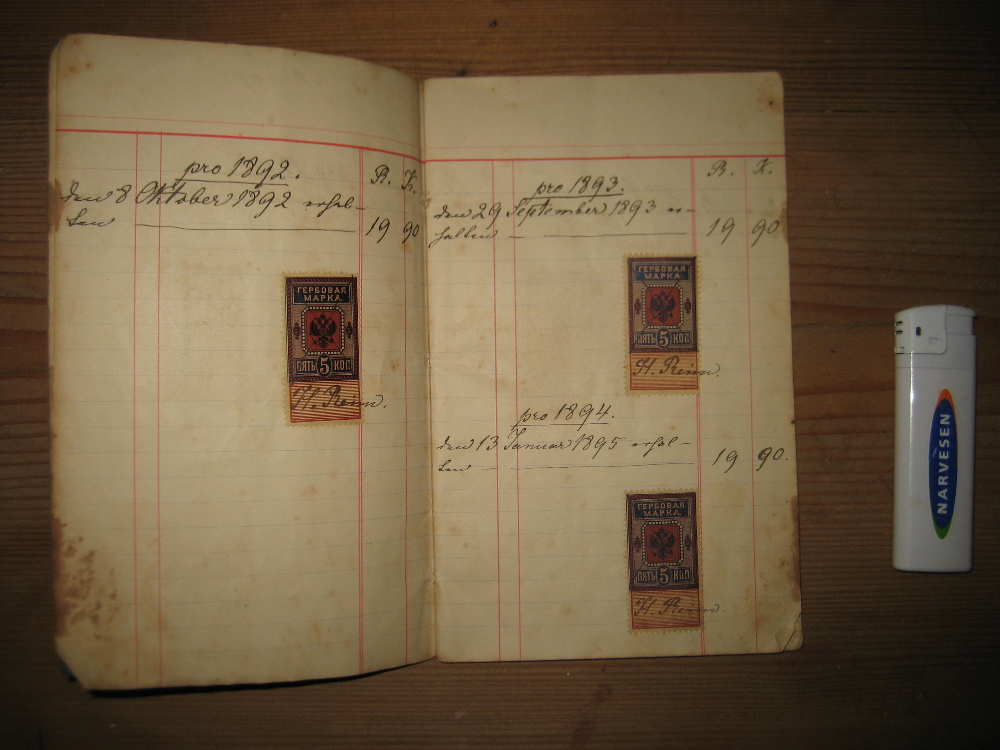 pro 1892.
R. K.
den 8 Oktober 1892 erhal-
ten 19 90
ГЕРБОВАЯ
МАРКА.
ПЯТЬ 5 КОП
H. Reinn.
R. K.
pro 1893.
den 29 September 1893 er-
halten 19 90
ГЕРБОВАЯ
МАРКА.
ПЯТЬ 5 КОП
H. Reinn.
pro 1894.
den 13 Januar 1895 erhal-
ten 19 90.
ГЕРБОВАЯ
МАРКА.
ПЯТЬ 5 КОП
H. Reinn.
NARVESEN